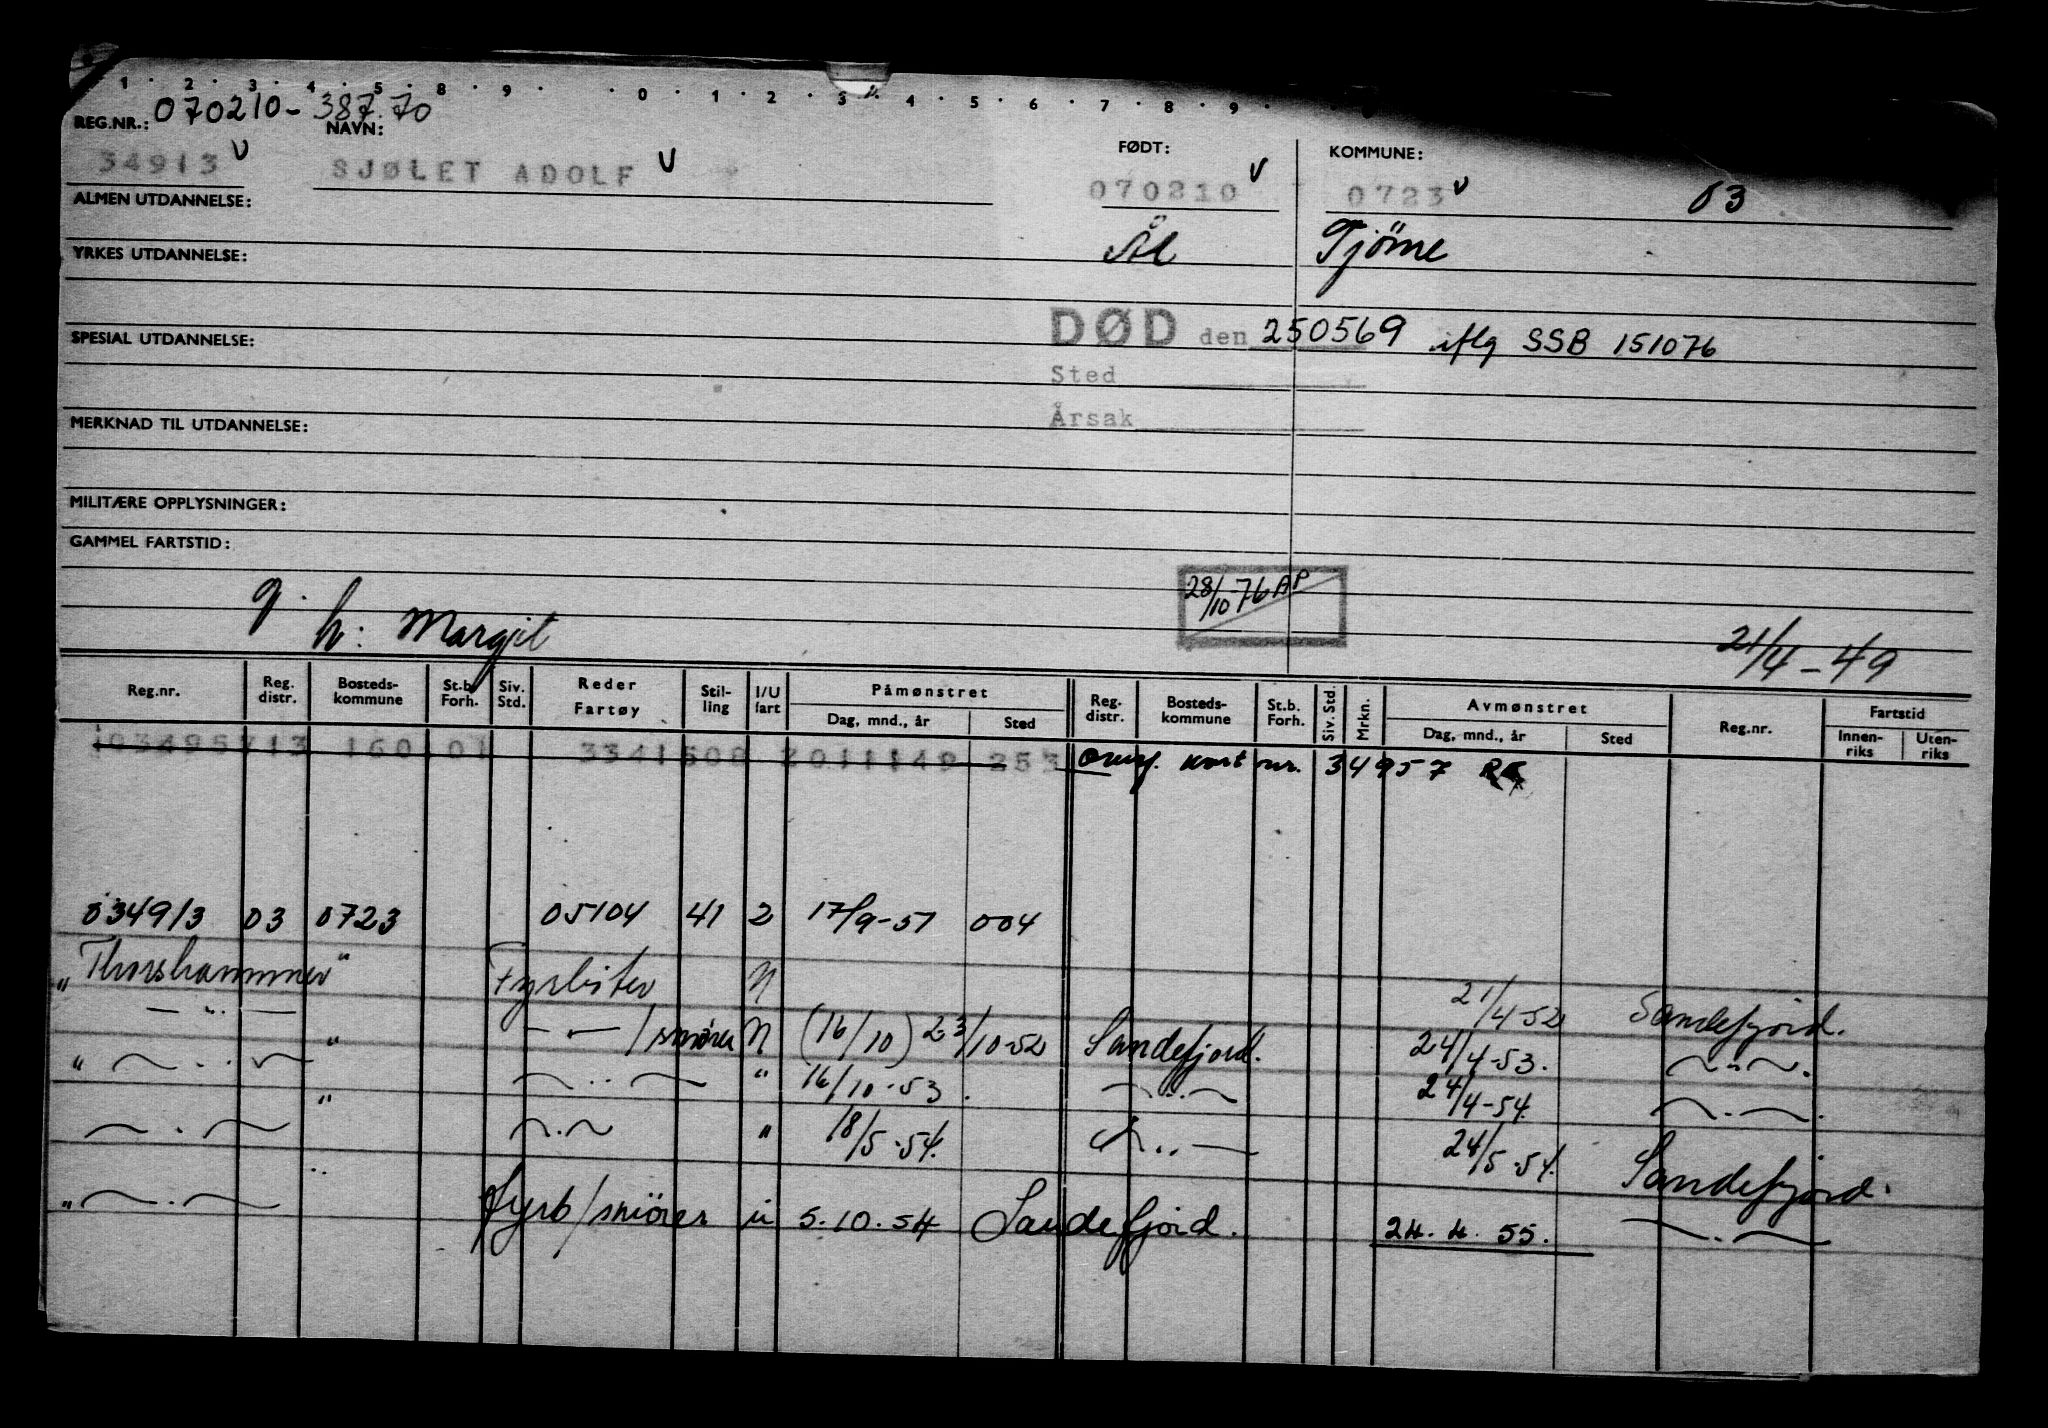 1 · 2 · 3 · 4 · 5 · 8 · 9 · · 0 · 1 · 2 · 3 · 4 · 5 · 6 · 7 · 8 · 9 ·
REG.NR.: 070210-387.70
NAVN:
FØDT:
KOMMUNE:
34913 V
SJØLET ADOLF V
070210 V
0723 V
03
ALMEN UTDANNELSE:
Ål
Tjöme
YRKES UTDANNELSE:
DØD den 250569 iflg SSB 151076
SPESIAL UTDANNELSE:
Sted
Årsak
MERKNAD TIL UTDANNELSE:
MILITÆRE OPPLYSNINGER:
GAMMEL FARTSTID:
28/10-76 AP
g. h: Margit
21/4-49
Reg.nr. Reg. distr. Bosteds-kommune St.b. Forh. Siv. Std. Reder Fartøy Stil-ling I/U fart Påmønstret Dag, mnd., år Sted Reg. distr. Bosteds-kommune St.b. Forh. Siv. Std. Mrkn. Avmønstret Dag, mnd., år Sted Reg.nr. Fartstid Innen-riks Uten-riks
103495713 160101 3341508 2011149 253 kort nr. 34957
034913 03 0723 05104 41 2 17/9-51 004
" Thorshammer " Fyrbøter N 21/4-52 Sandefjord.
— " — " — — / smører N (16/10) 23/10-52 Sandefjord. 24/4-53. — " — .
" — . . — " — . . — " 16/10-53. — . . — 24/4-54. — . — .
— . — — . . — " 18/5-54. — . . — 24/5-54. Sandefjord.
" — . — " fyrb/smörer u 5.10.54 Sandefjord. 24.4.55. — . —